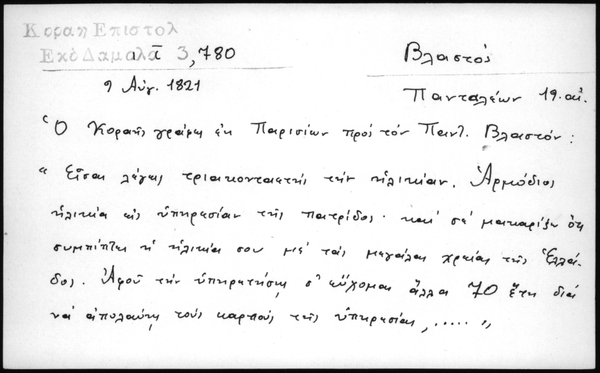 Κοραη Επιστολ
Εκδ Δαμαλά 3, 780
Βλαστός
9 Αὐγ. 1821
Πανταλέων 19. αἰ.
Ὁ Κοραῆς γράφει ἐκ Παρισίων πρός τόν Παντ. Βλαστόν:
"Εἶσαι λέγεις τριακονταετής τήν ἡλικίαν. Ἁρμόδιος
ἡλικία εἰς ὑπηρεσίαν τῆς πατρίδος. καί σέ μακαρίζω ὅτι
συμπίπτει ἡ ἡλικία σου μέ τάς μεγάλας χρείας τῆς Ἑλλά-
δος. Ἀφοῦ τήν ὑπηρετήσῃς σ' εὔχομαι ἄλλα 70 ἔτη διά
νά ἀπολαύῃς τούς καρπούς τῆς ὑπηρεσίας, ....."